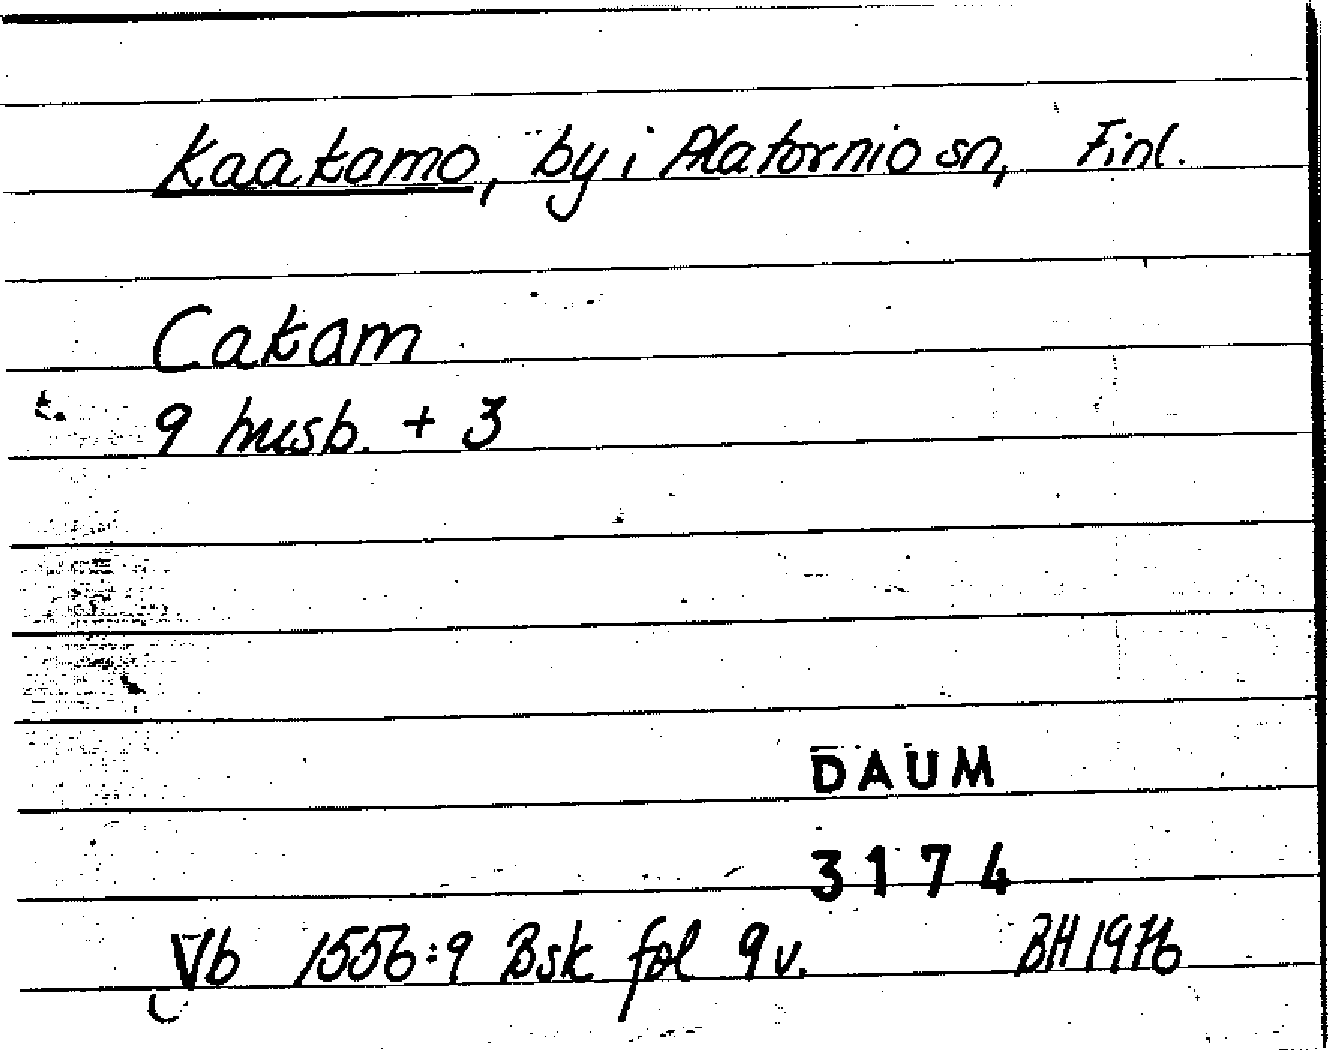 Kaakamo, by i Alatornio sn, Finl.
Cakam
9 husb. + 3
DAUM
3174
Vb 1556:9 Bsk fol 9 v. BH 1976